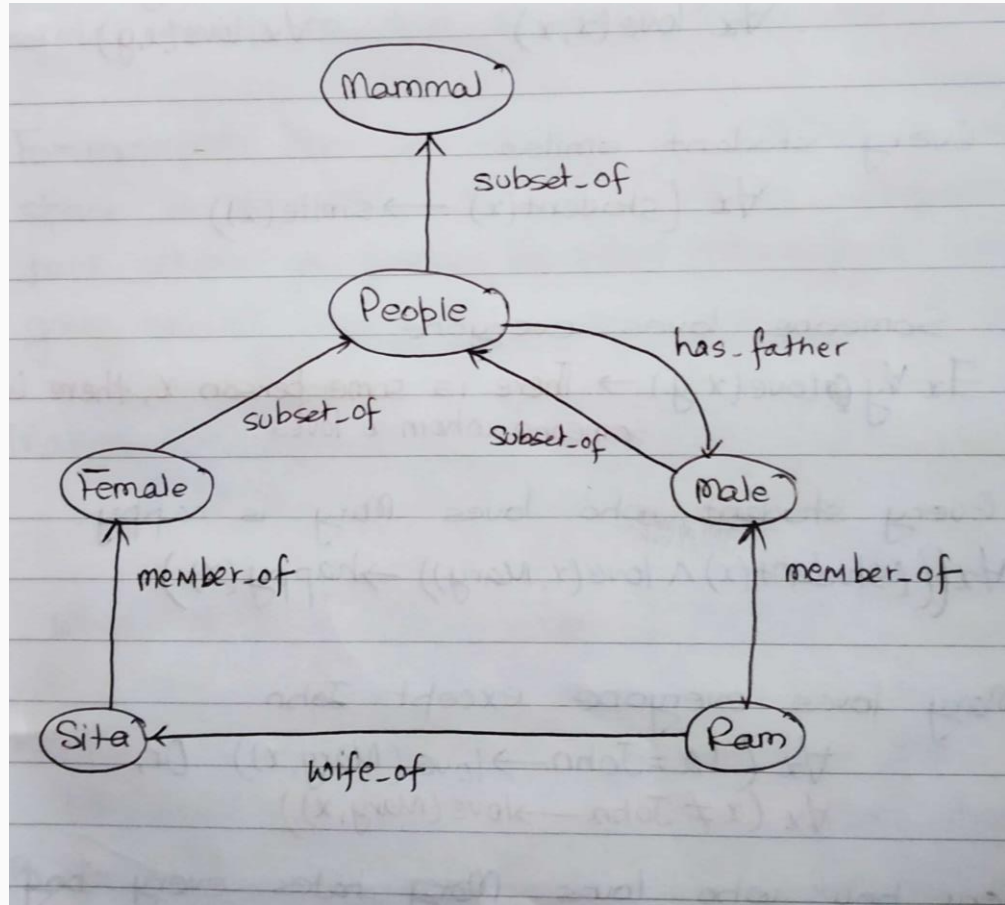 Mammal
subset_of
People
has_father
subset_of
subset_of
Female
Male
member_of
member_of
Sita
Ram
wife_of